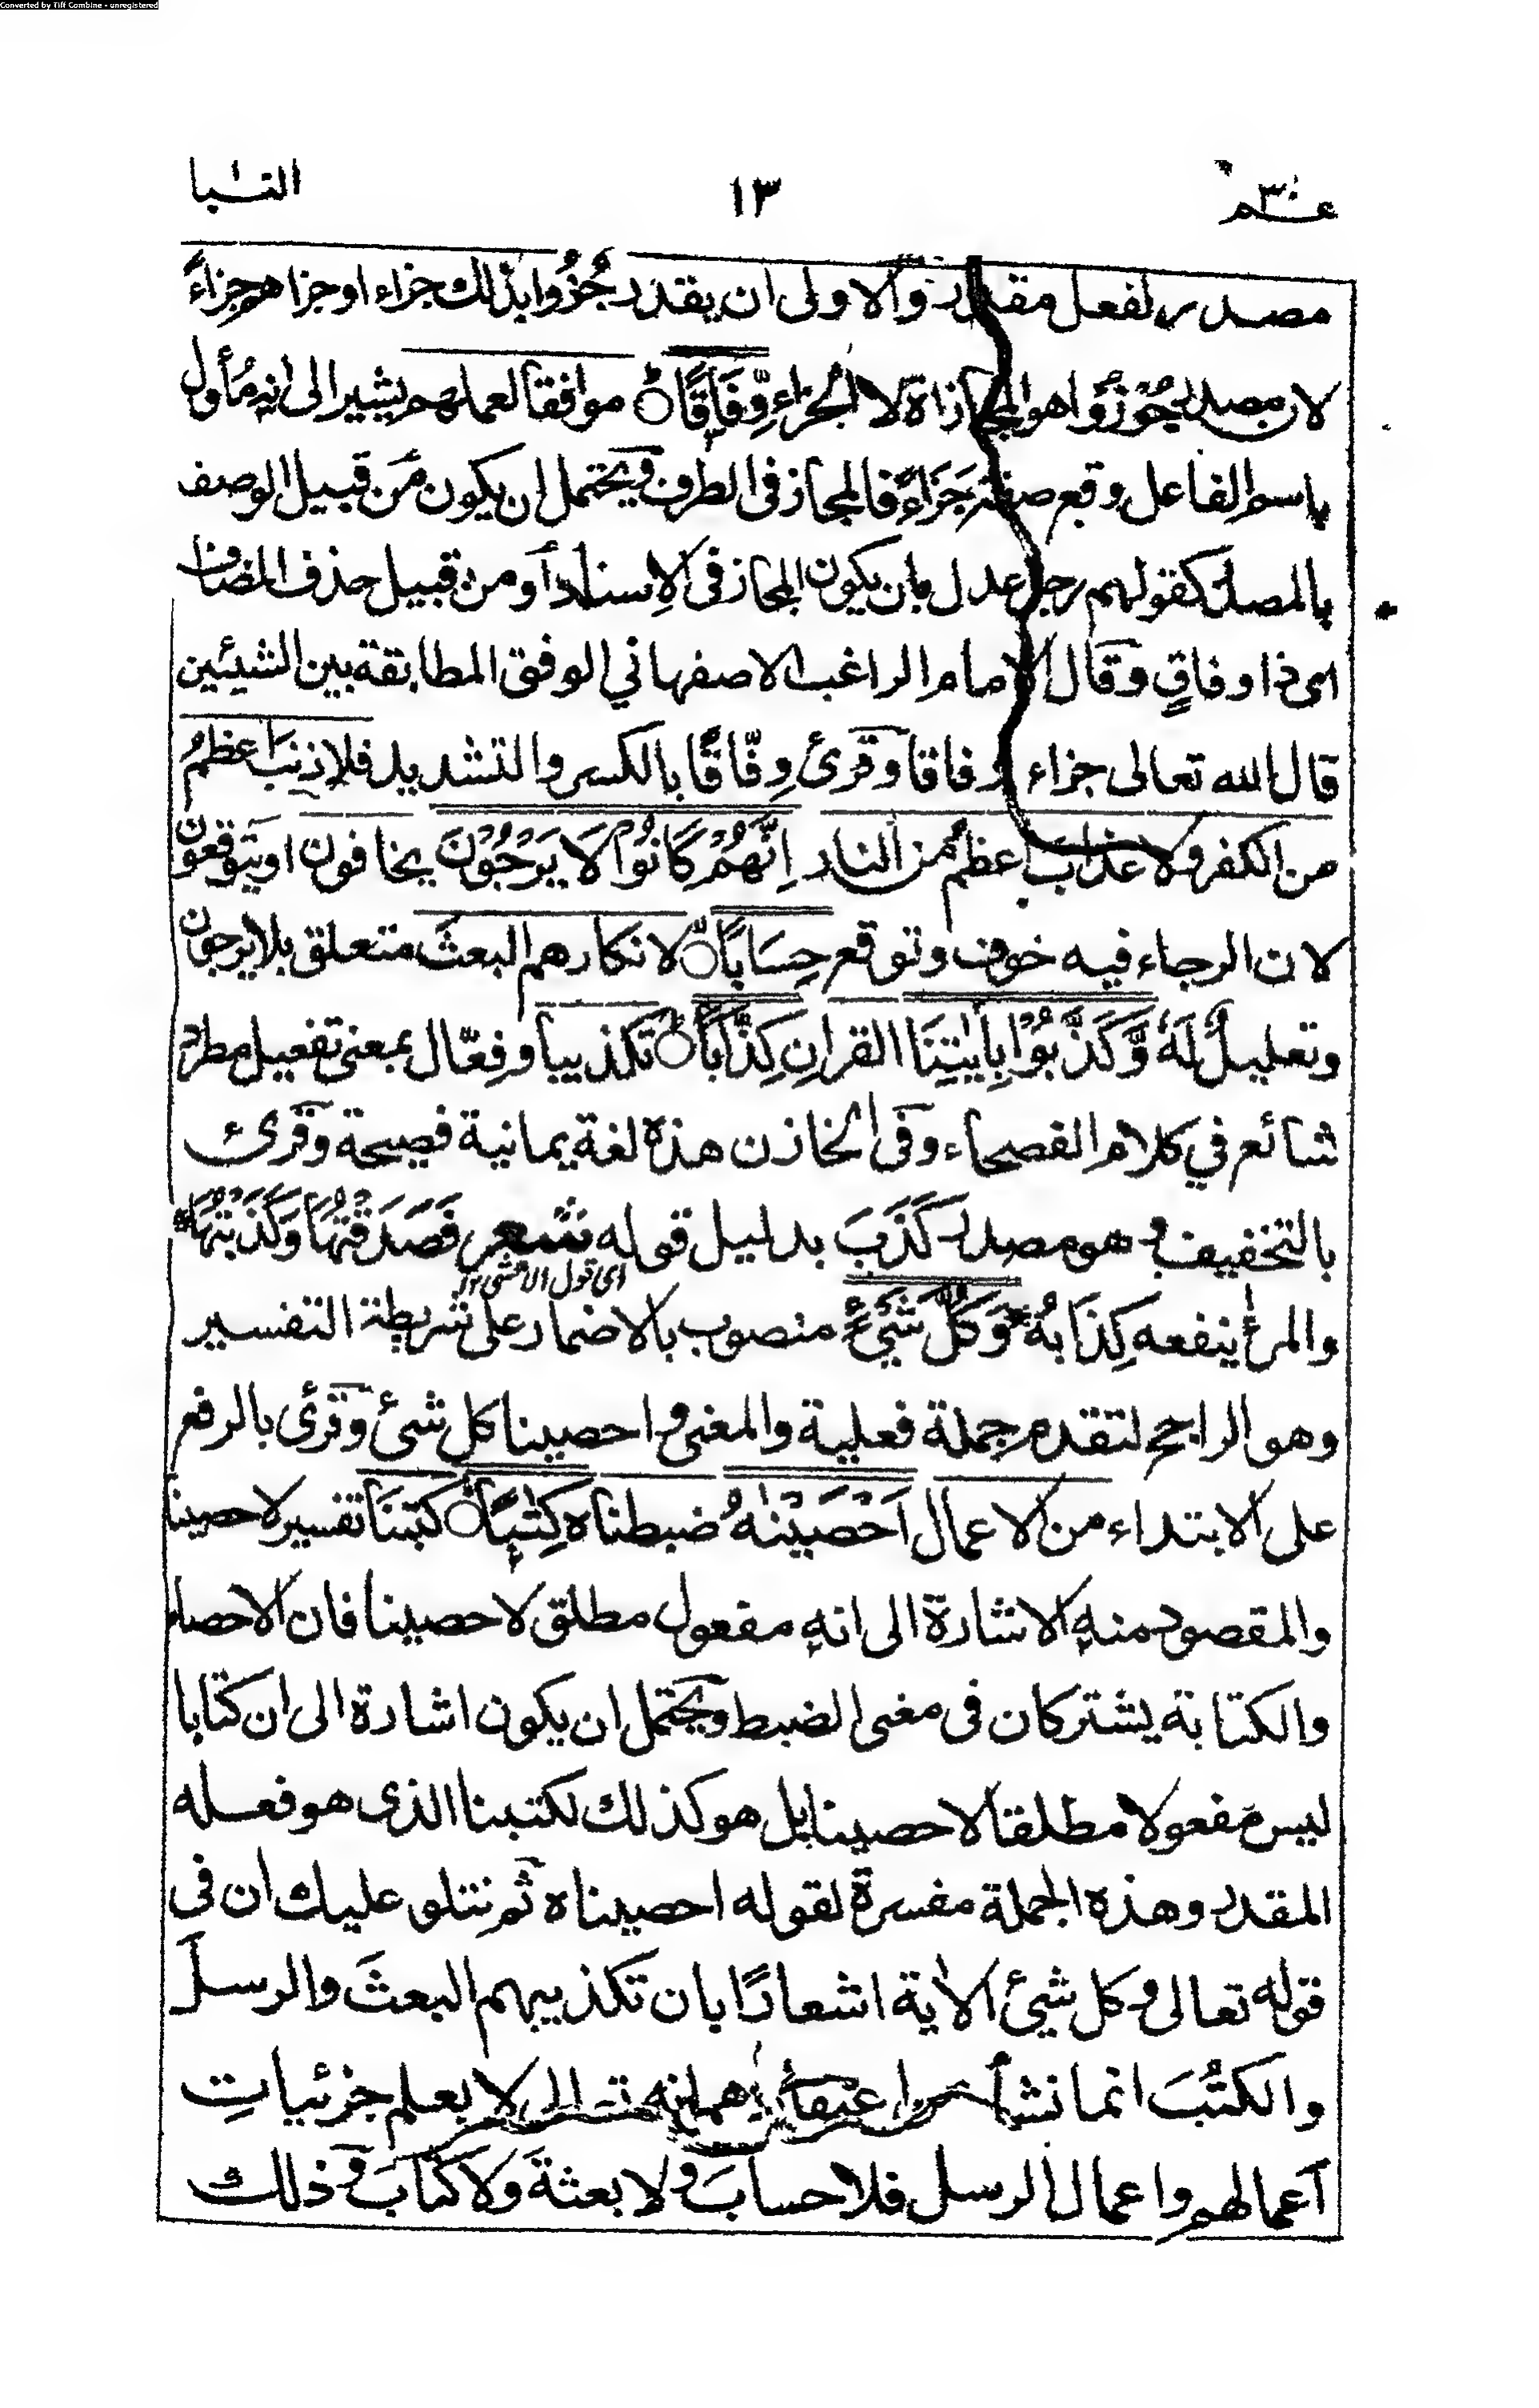 Converted by Tiff Combine - unregistered
عـم٣٠ ١٣ النبا
مصدر لفعل مقدر والاولى ان يقدر جُزُوا بذلك جزاء او جزاهم جزاءً
لان مصدر جُوْزُوا هو المجازاة لا الجزاء وِّفَاقًا موافقا لعملهم يشير الى انه مُأول
باسم الفاعل وقع صفة جَزَاءً فالمجاز فى الطرف ويحتمل ان يكون من قبيل الوصف
بالمصدر كقولهم رجل عدل بان يكون المجاز فى الاسناد أو من قبيل حذف المضاف
اى ذا وفاقٍ وقال الامام الراغب الاصفهاني الوفق المطابقة بين الشيئين
قال الله تعالى جزاء وفاقا وقرئ وِفّاقًا بالكسر والتشديد فلا ذنبَ اعظمُ
من الكفر ولا عذابَ اعظمُ من النار اِنَّهُمْ كَانُوْا لَا يَرْجُوْنَ يخافون او يتوقعون
لان الرجاء فيه خوف وتوقع حِسَابًا لانكارهم البعثَ متعلق بلا يرجون
وتعليلٌ لَهٗ وَّكَذَّبُوْا بِاٰيٰتِنَا القرانِ كِذَّابًا تكذيبا وفِعّال بمعنى تفعيل مطرد
شائع في كلام الفصحاء وفى الخازن هذه لغة يمانية فصيحة وقرئ
بالتخفيف وهو مصدر كَذَبَ بدليل قوله شعر فَصَدَقْتُهَا وَكَذَبْتُهَا
اى قول الاعشى ١٢
والمرأ ينفعه كِذَابُهُ وَكُلَّ شَيْءٍ منصوب بالاضمار على شريطة التفسير
وهو الراجح لتقدم جملة فعلية والمعنى واحصينا كل شئ وقرئ بالرفع
على الابتداء من الاعمال اَحْصَيْنٰهُ ضبطناه كِتٰبًا كتبنا تفسير لاحصينا
والمقصود منه الاشارة الى انه مفعول مطلق لاحصينا فان الاحصاء
والكتابة يشتركان فى معنى الضبط ويحتمل ان يكون اشارة الى ان كتابا
ليس مفعولا مطلقا لاحصينا بل هو كذلك لكتبنا الذى هو فعله
المقدر وهذه الجملة مفسرة لقوله احصيناه ثم نتلو عليك ان فى
قوله تعالى وكل شيئ الأية اشعارًا بان تكذيبهم البعثَ والرسلَ
والكتُبَ انما نشأ انه تعالى لا يعلم جزئياتِ
اعمالهم واعمال الرسل فلا حسابَ ولا بعثةَ ولا كتابَ وذلك